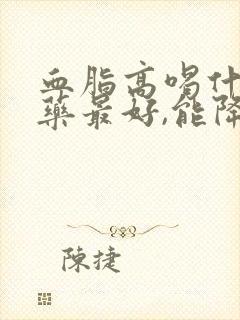 血脂高喝什
藥最好,能降
陳捷